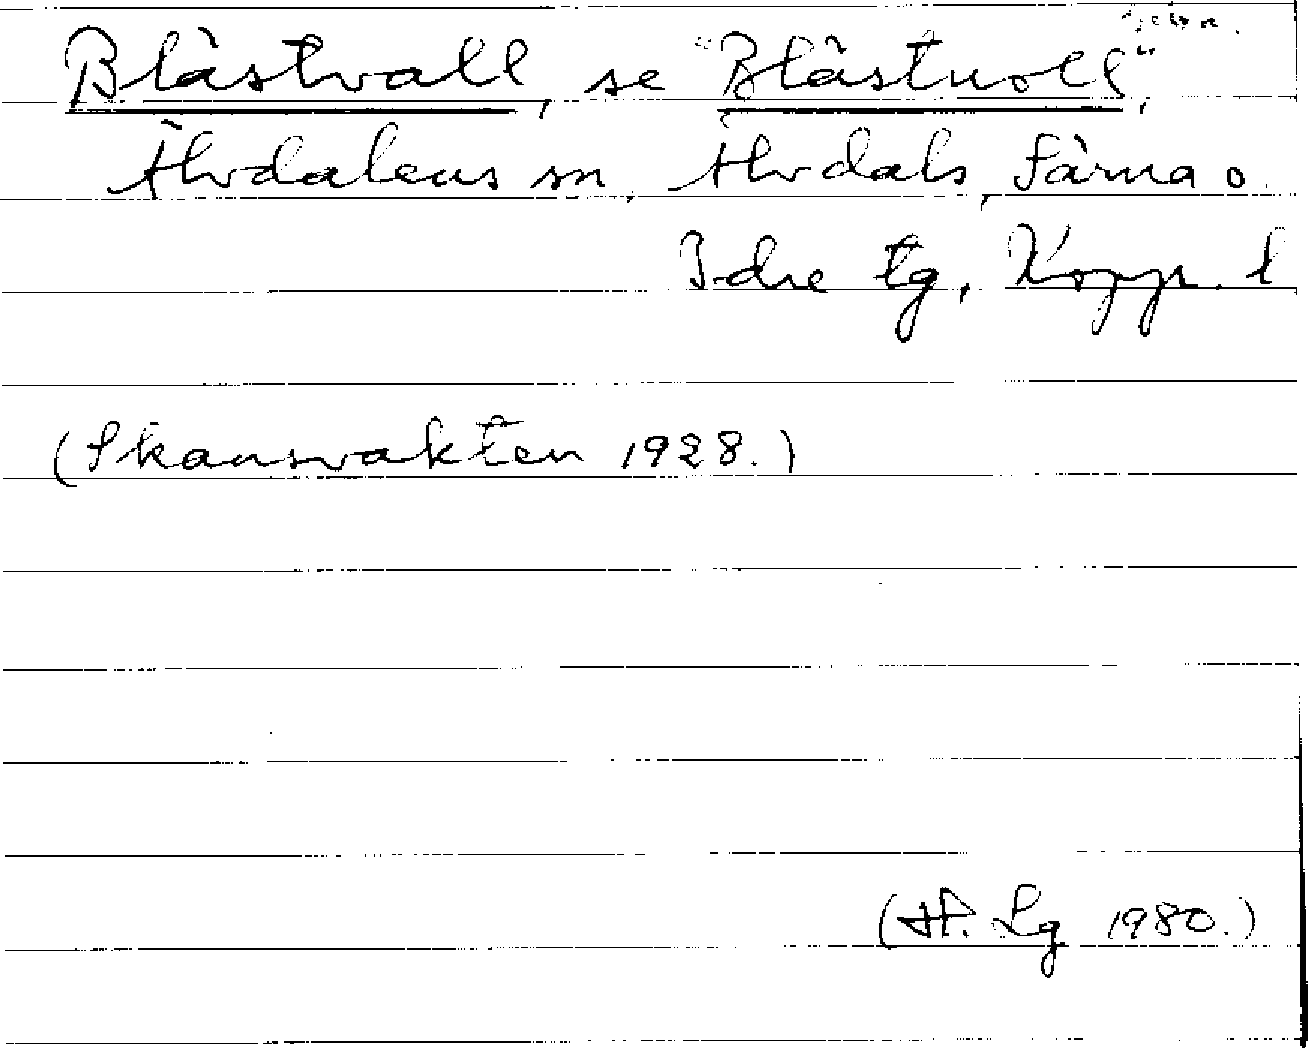 Blåstvall, se "Blåstvoll",
Älvdalens sn, Älvdals, Särna o
Idre tg, Kopp. l
(Skansvakten 1928.)
(H. Lg 1980.)